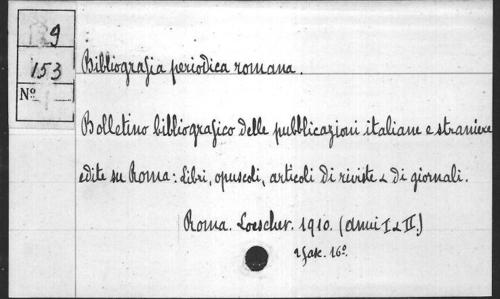 9
153
Nº 1
Bibliografia periodica romana.
Bolletino bibliografico delle pubblicazioni italiane e straniere
edite su Roma: Libri, opuscoli, articoli di riviste & di giornali.
Roma. Loescher. 1910. (Anni I & II.)
2 fasc. 16º.